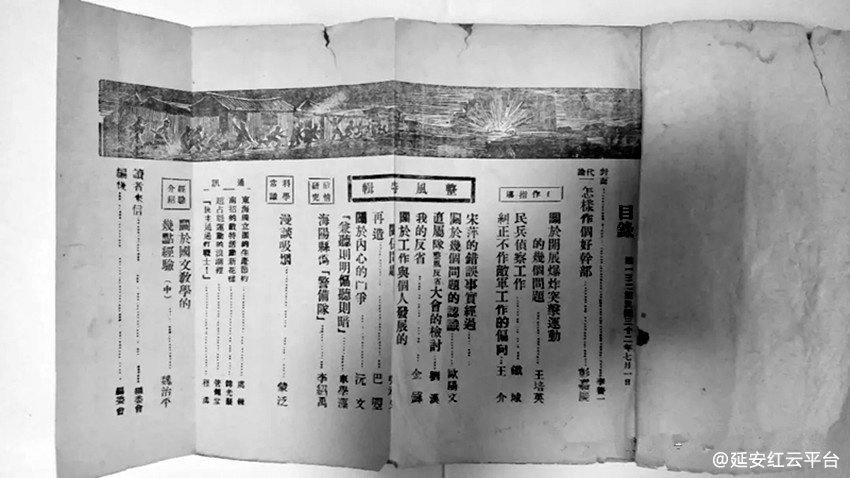 目錄
民國三十二年七月一日
封面……李善一
代論 怎樣作個好幹部……彭嘉慶
工作指導
關於開展爆炸突擊運動
的幾個問題……王培英
民兵偵察工作……鐵城
糾正不作敵軍工作的偏向……王介
整風專輯
宋萍的錯誤事實經過
關於幾個問題的認識……歐陽文
直屬隊整風反省大會的檢討……劉漢
我的反省……金鋒
關於工作與個人發展的
再造……巴盟
關於內心的鬥爭……沅文
「兼聽則明偏聽則暗」……車學藻
敵情研究
海陽縣偽「警備隊」……李紹禹
科學常識
漫談吸煙……蒙泛
通訊
東海獨立團的生產節約
南招的敵特活動新花樣
經驗介紹
關於國文教學的
幾點經驗(中)……魏治平
讀者來信……編委會
編後……編委會
@延安红云平台